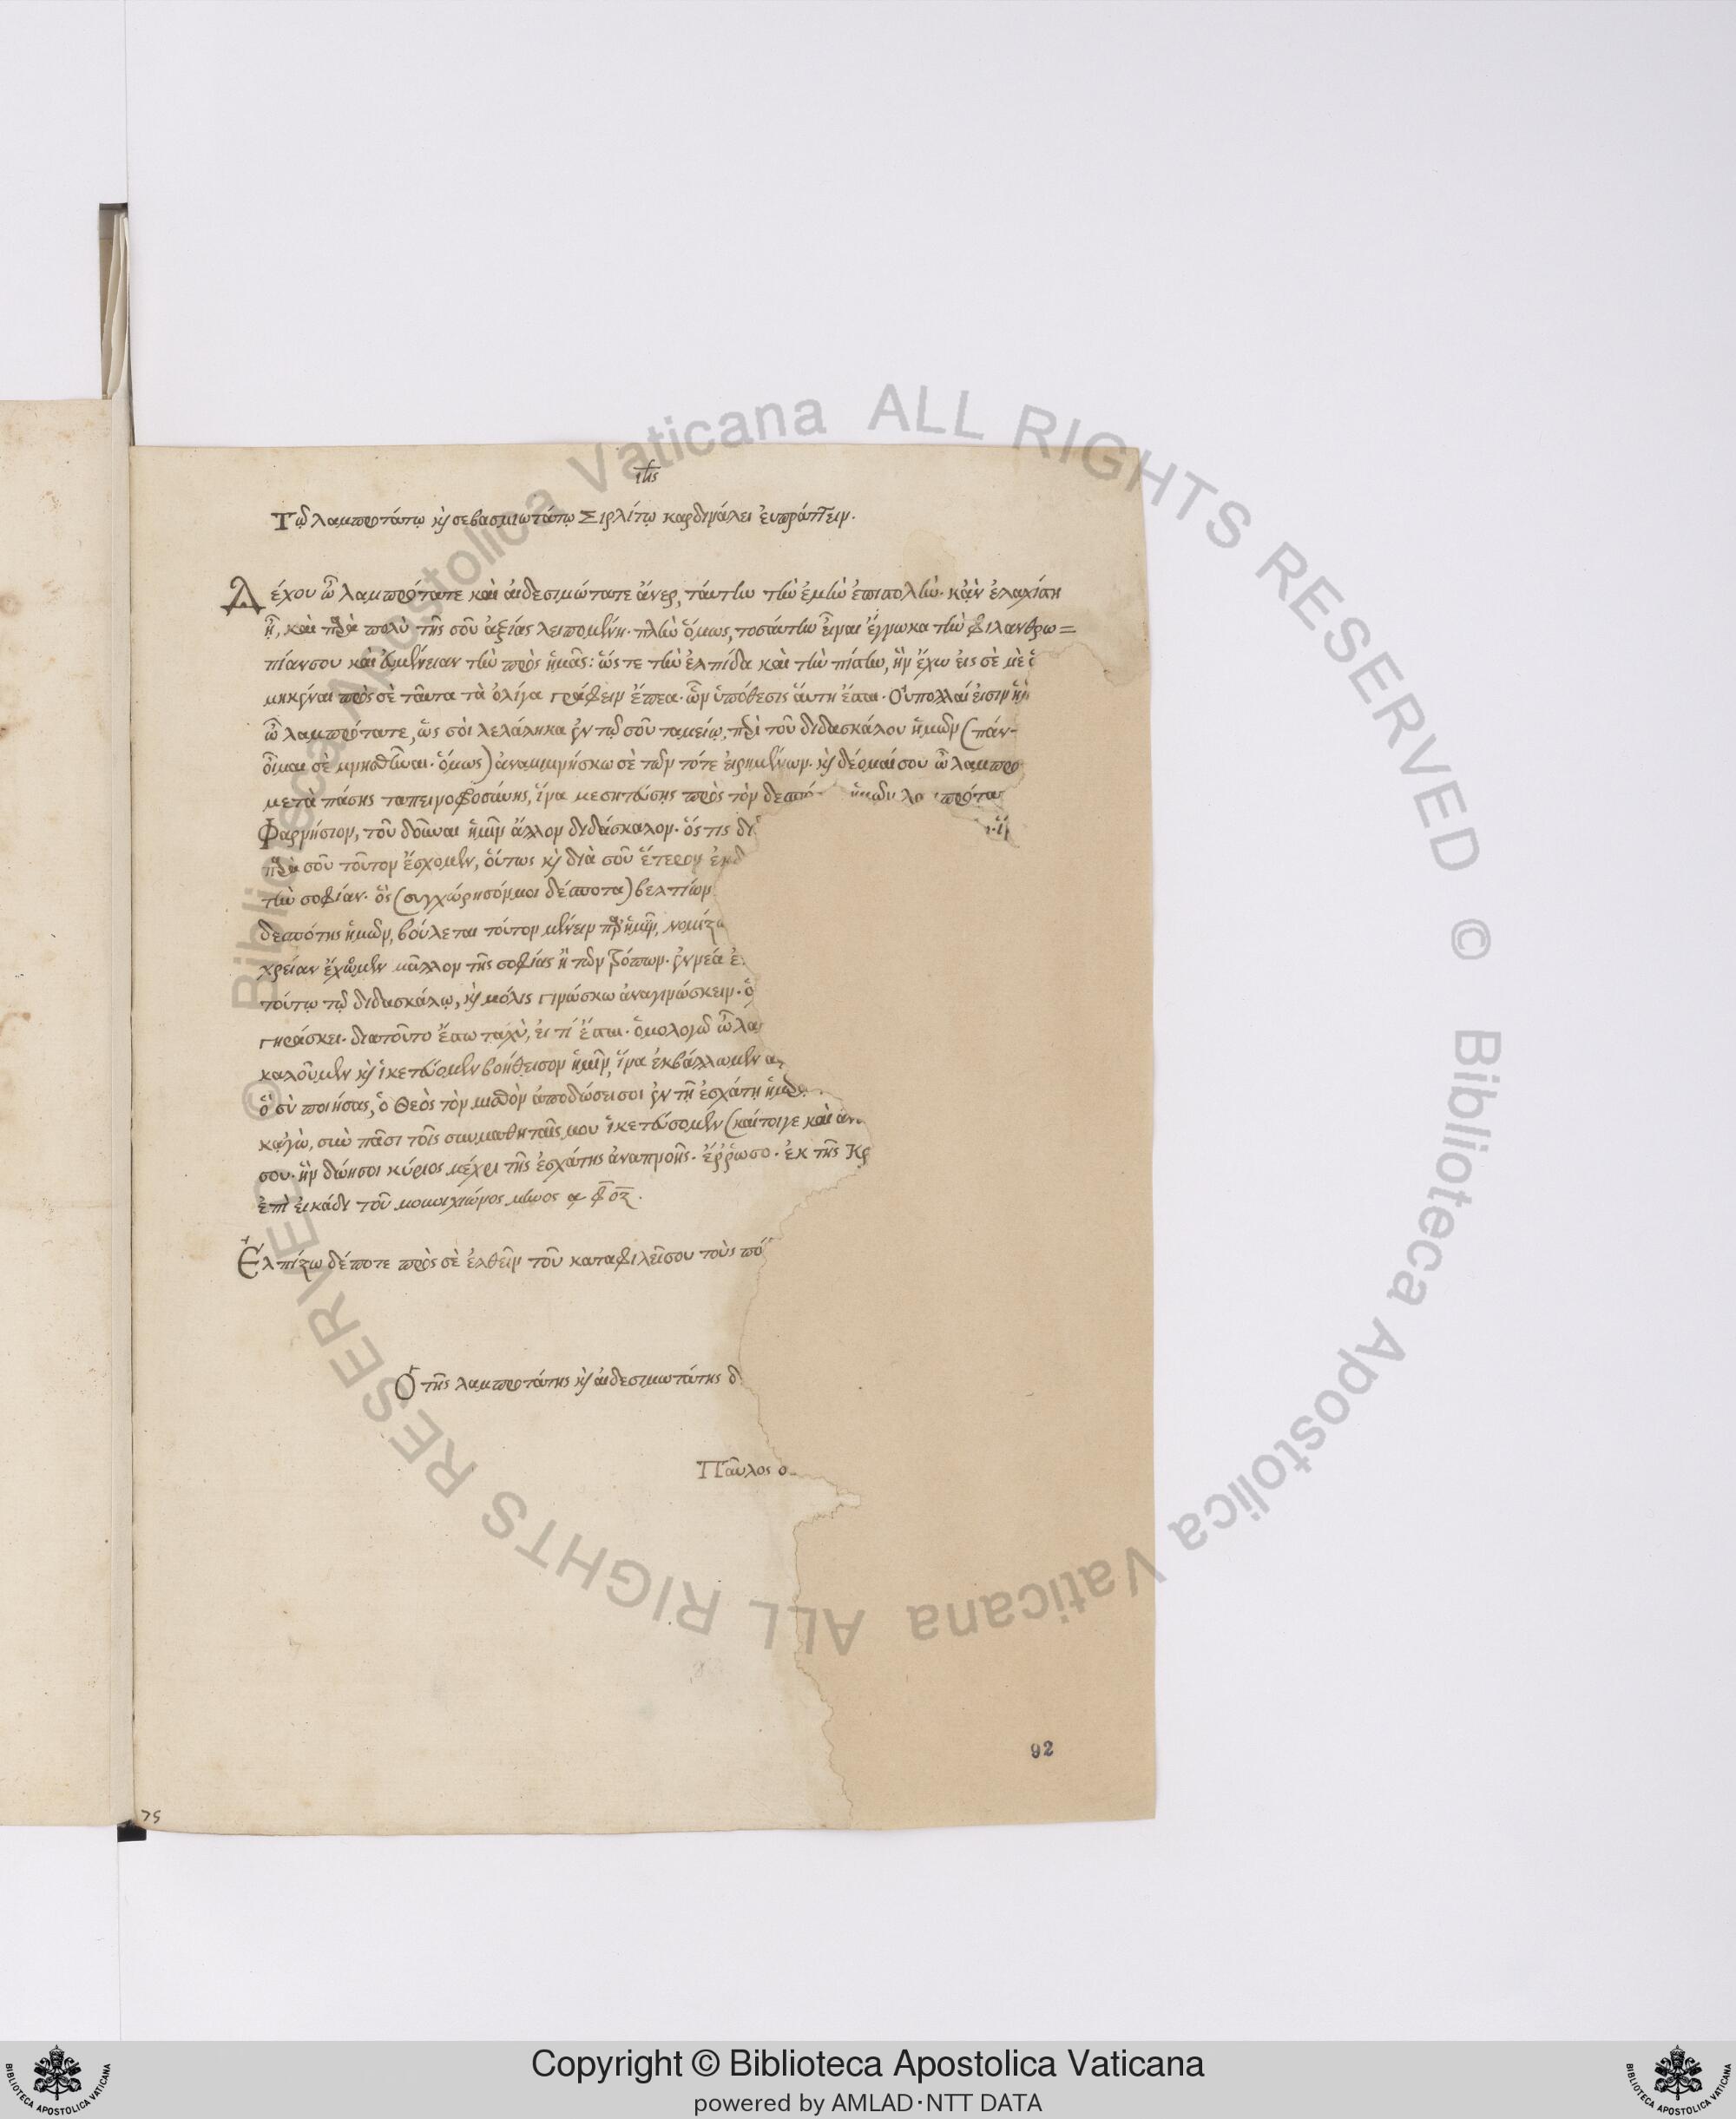 ιης
Τῷ λαμπροτάτῳ κὶ σεβασμιωτάτῳ Σιρλίτῳ καρδινάλει ἐυπράττειν.
Δέχου ὦ λαμπρότατε καὶ αἰδεσιμώτατε ἄνερ, ταύτην τὴν ἐμὴν ἐπιστολὴν· κἂν ἐλαχίστη
ἦ, καὶ παρὰ πολὺ τῆς σοῦ ἀξίας λειπομένη· πλὴν ὅμως, τοσαύτην εἶναι ἔγνωκα τὴν φιλανθρω=
πίαν σου καὶ ἐυμένειαν τὴν πρὸς ἡμᾶς: ὥς τε τὴν ἐλπίδα καὶ τὴν πίστιν, ἣν ἔχω εἰς σὲ μὲ
πρὸς σὲ ταῦτα τὰ ὀλίγα γράφειν ἔπεα· ὧν ὑπόθεσις ἅυτη ἔσται· Ὀυπολλαί εἰσιν
ὦ λαμπρότατε, ὥς σὸι λελάληκα ἐν τῷ σοῦ ταμείῳ, περὶ τοῦ διδασκάλου ἡμῶν (πάν-
οἶμαι σὲ μνησθῆναι· ὅμως) ἀναμιμνήσκω σὲ τῶν τότε ἐιρημένων· κὶ δέομαί σου ὦ λαμπρο
μετὰ πάσης ταπεινοφροσύνης, ἵνα μεσητέυσῃς πρὸς τὸν δεσπό ἡμῶν λα πρότα
Φαρνήσιον, τοῦ δοῦναι ἡμῖν ἄλλον διδάσκαλον· ὅς τις δι
παρὰ σοῦ τοῦτον ἔσχομεν, ὅυτως κὶ διὰ σοῦ ἕτερον ἐκδ
τὴν σοφίαν· ὃς (συγχώρησόν μοι δέσποτα) βελτίων
δεσπότης ἡμῶν, βούλεται τόυτον μένειν παρ' ἡμῖν, νομίζω
χρείαν ἔχωμεν μᾶλλον τῆς σοφίας ἢ τῶν τρόπων· ἐννέα ἐ
τούτῳ τῷ διδασκάλῳ, κὶ μόλις γινώσκω ἀναγινώσκειν· ὁ
γηράσκει· διατοῦτο ἔστω ταχὺ, ἐι τί ἔσται· ὁμολογῶ ὦ λα
καλοῦμεν κὶ ἱκετέυομεν βοήθεισον ἡμῖν, ἵνα ἐκβάλλωμεν
ὃ σὺ ποιήσας, ὁ Θεὸς τὸν μισθὸν ἀποδώσει σοι ἐν τῇ ἐσχάτῃ ἡμέρ
κᾀγὼ, σὺν πᾶσι τοῖς συμμαθηταῖς μου ἱκετέυσομεν (καίτοιγε καὶ ἀν
σου· ἣν δώῃ σοι κύριος μέχρι τῆς ἐσχάτης ἀναπνοῆς· ἔῤῥωσο· ἐκ τῆς Κρ
ἐπὶ ἐικάδι τοῦ μουνιχιῶνος μηνὸς α φ οζ.
Ἐλπίζω δέποτε πρὸς σὲ ἐλθεῖν τοῦ καταφιλεῖν σου τοὺς πό
Ὁ τῆς λαμπροτάτης κὶ αἰδεσιμωτάτης δ
Παῦλος ο
92
75
Copyright © Biblioteca Apostolica Vaticana
powered by AMLAD·NTT DATA
© Biblioteca Apostolica Vaticana ALL RIGHTS RESERVED © Biblioteca Apostolica Vaticana ALL RIGHTS RESERVED
BIBLIOTECA APOSTOLICA VATICANA
BIBLIOTECA APOSTOLICA VATICANA